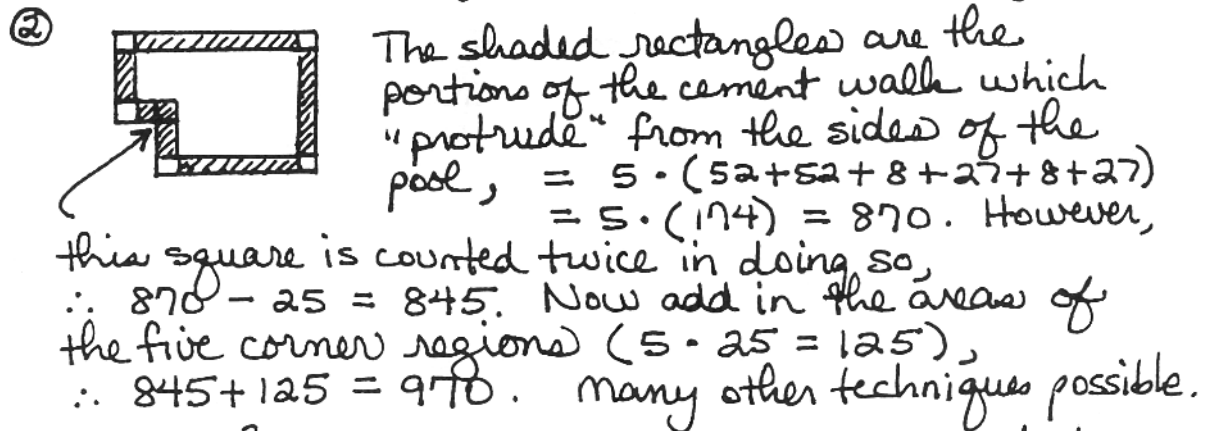 ②
The shaded rectangles are the
portions of the cement walk which
"protrude" from the sides of the
pool, = 5 · (52+52+8+27+8+27)
= 5 · (174) = 870. However,
this square is counted twice in doing so,
∴ 870 - 25 = 845. Now add in the areas of
the five corner regions (5 · 25 = 125),
∴ 845+125 = 970. Many other techniques possible.